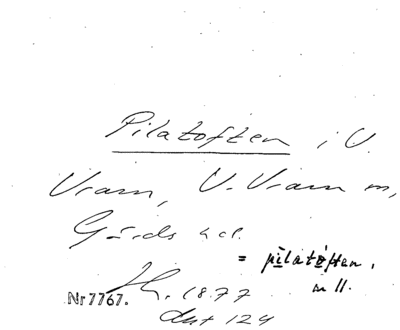 Pilatoften i V.
Vram, V. Vram sn,
Gärds hd.
= pilatoften,
m ll.
Nr 7767. 1877
124